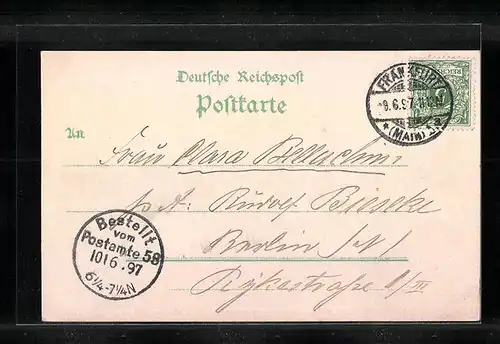 Deutsche Reichspost
Postkarte
An
Frau Clara Bellachini
p. A. Rudolf Bieseke
Berlin (N)
Rykestraße 1/III
FRANKFURT
9.6.97
(MAIN)
Bestellt
vom
Postamte 58
10 | 6 . 97
6¼-7¼N